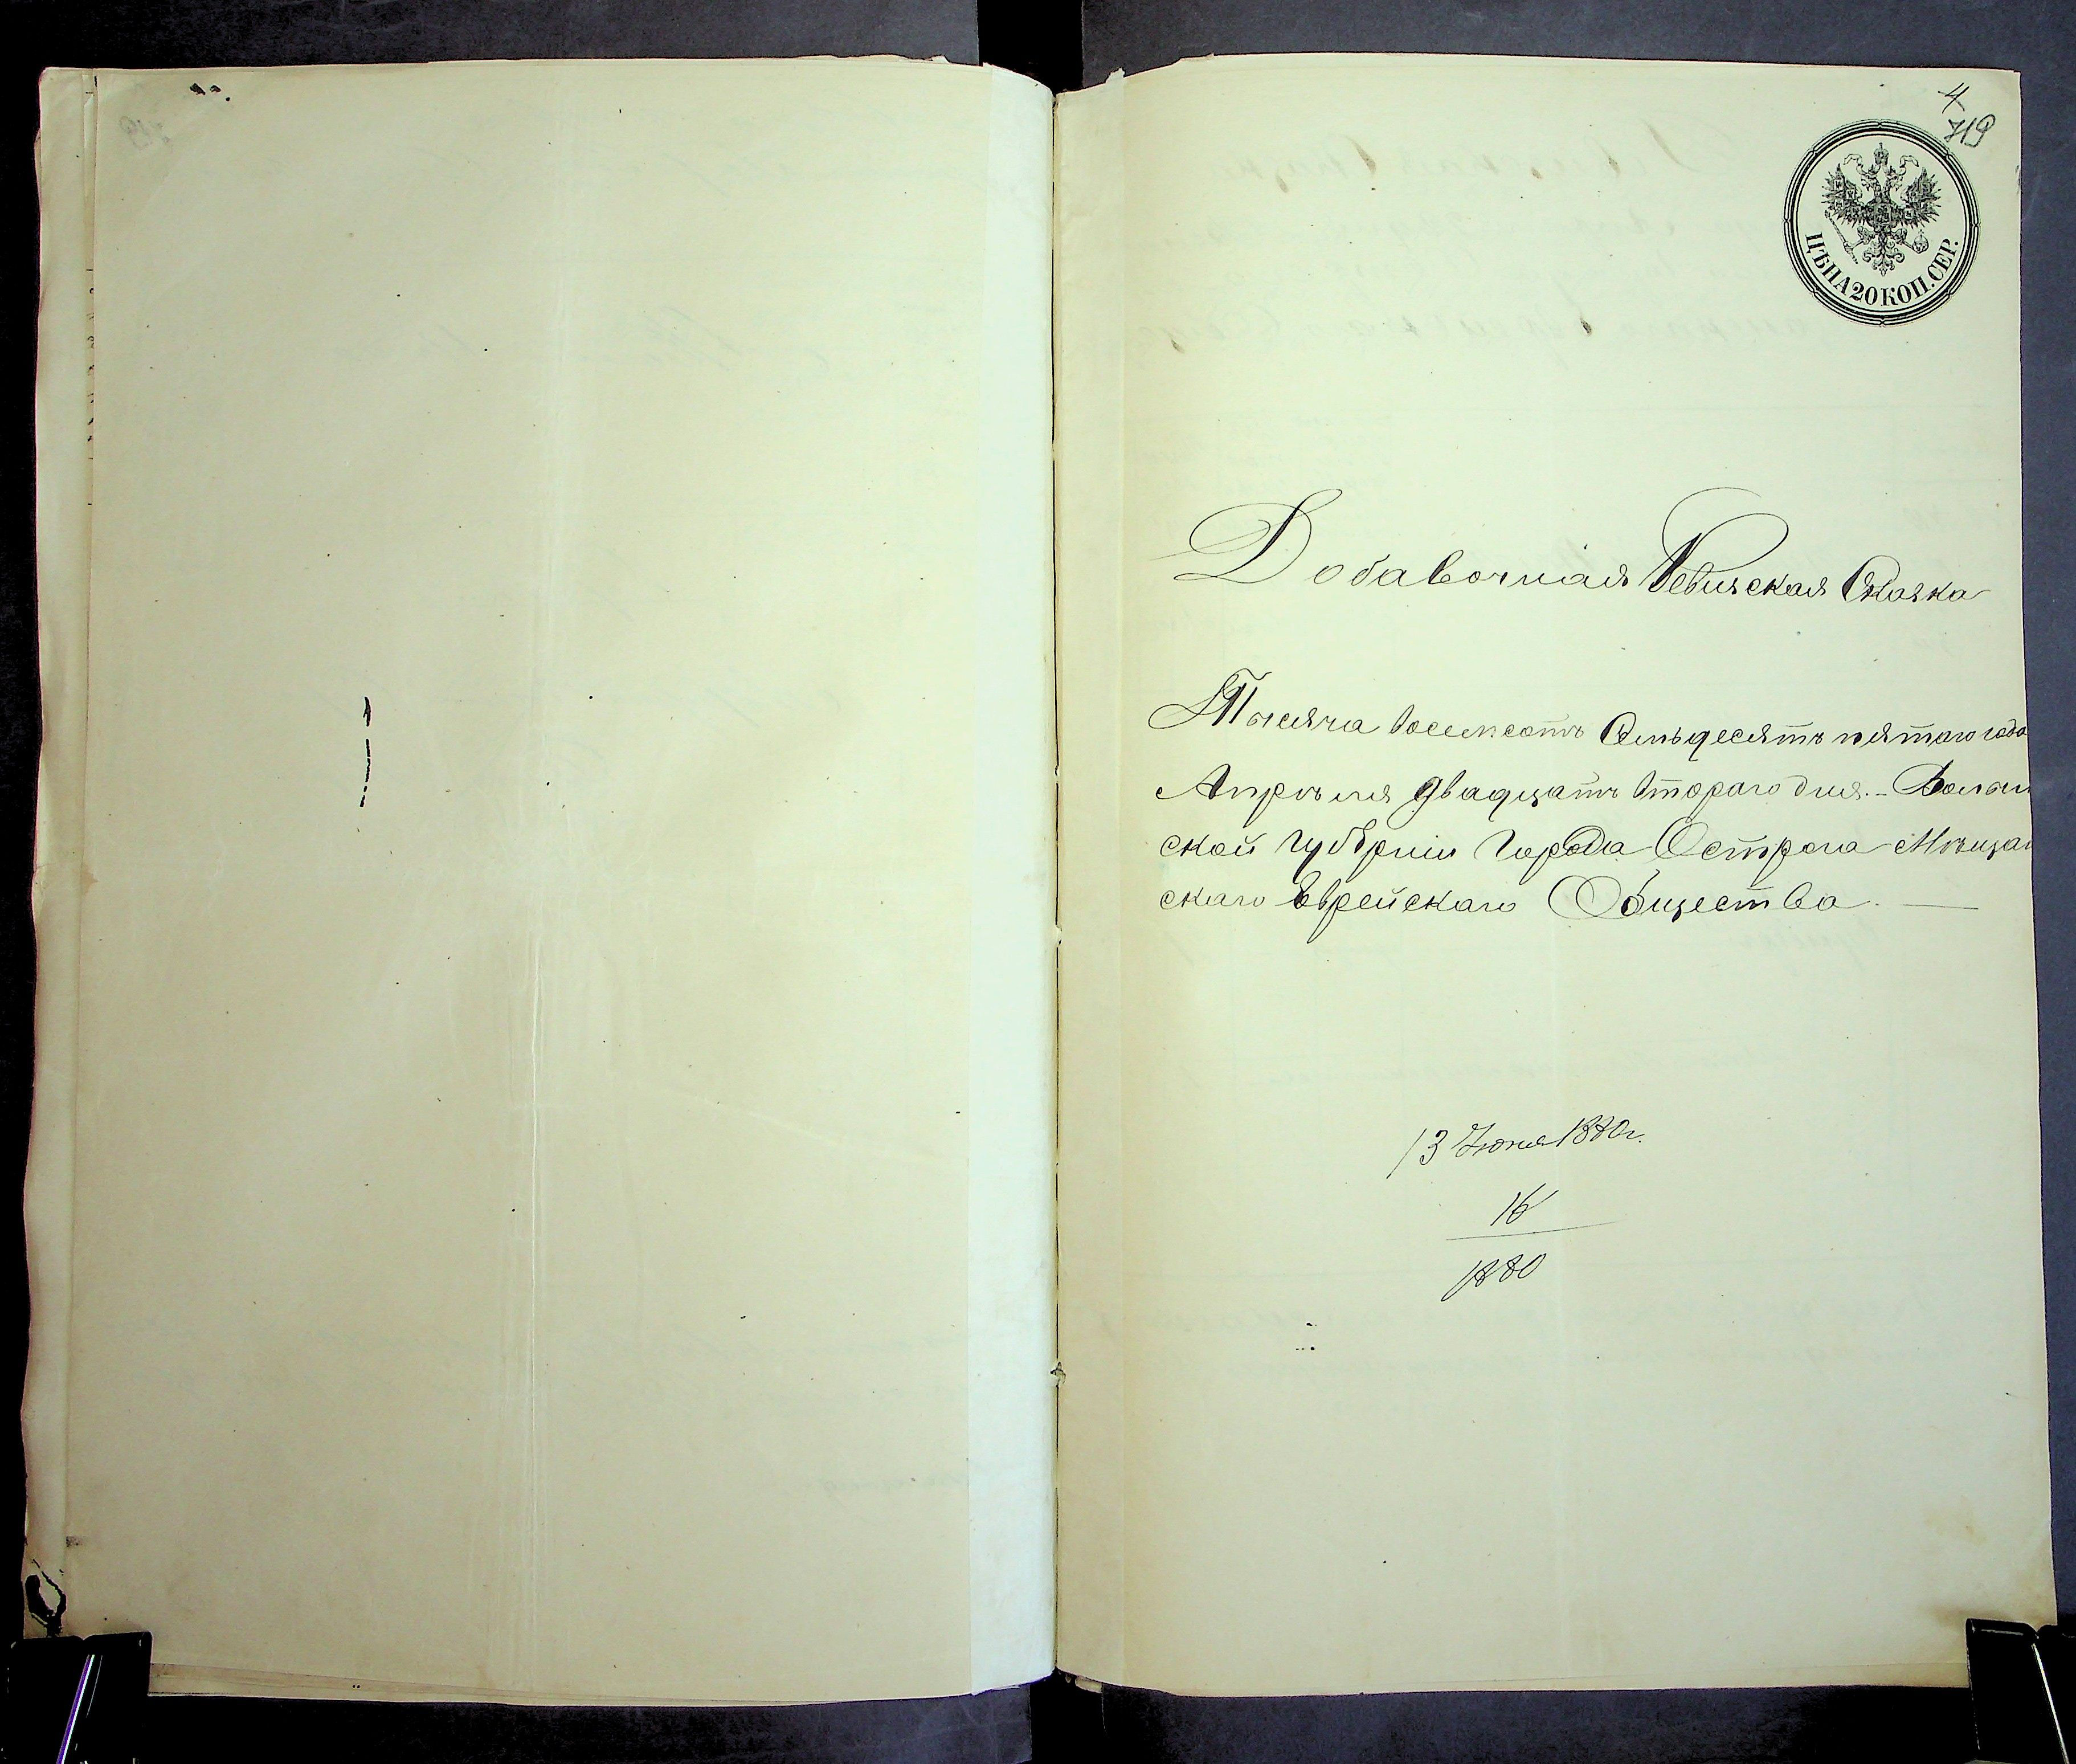 4
719
ЦѢНА 20 КОП. СЕР.
Добавочная Ревизская Сказка
Тысяча восемсотъ Семьдесятъ пятаго года
Апрѣля двадцать втораго дня. – Волын
ской губерніи Города Острога Мѣщан
скаго Еврейскаго Общества. —
13 Іюня 1880 г.
16
1880